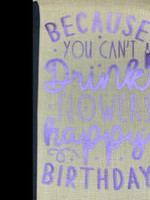 BECAUSE
YOU CAN'T
Drink
FLOWERS
happy
BIRTHDAY